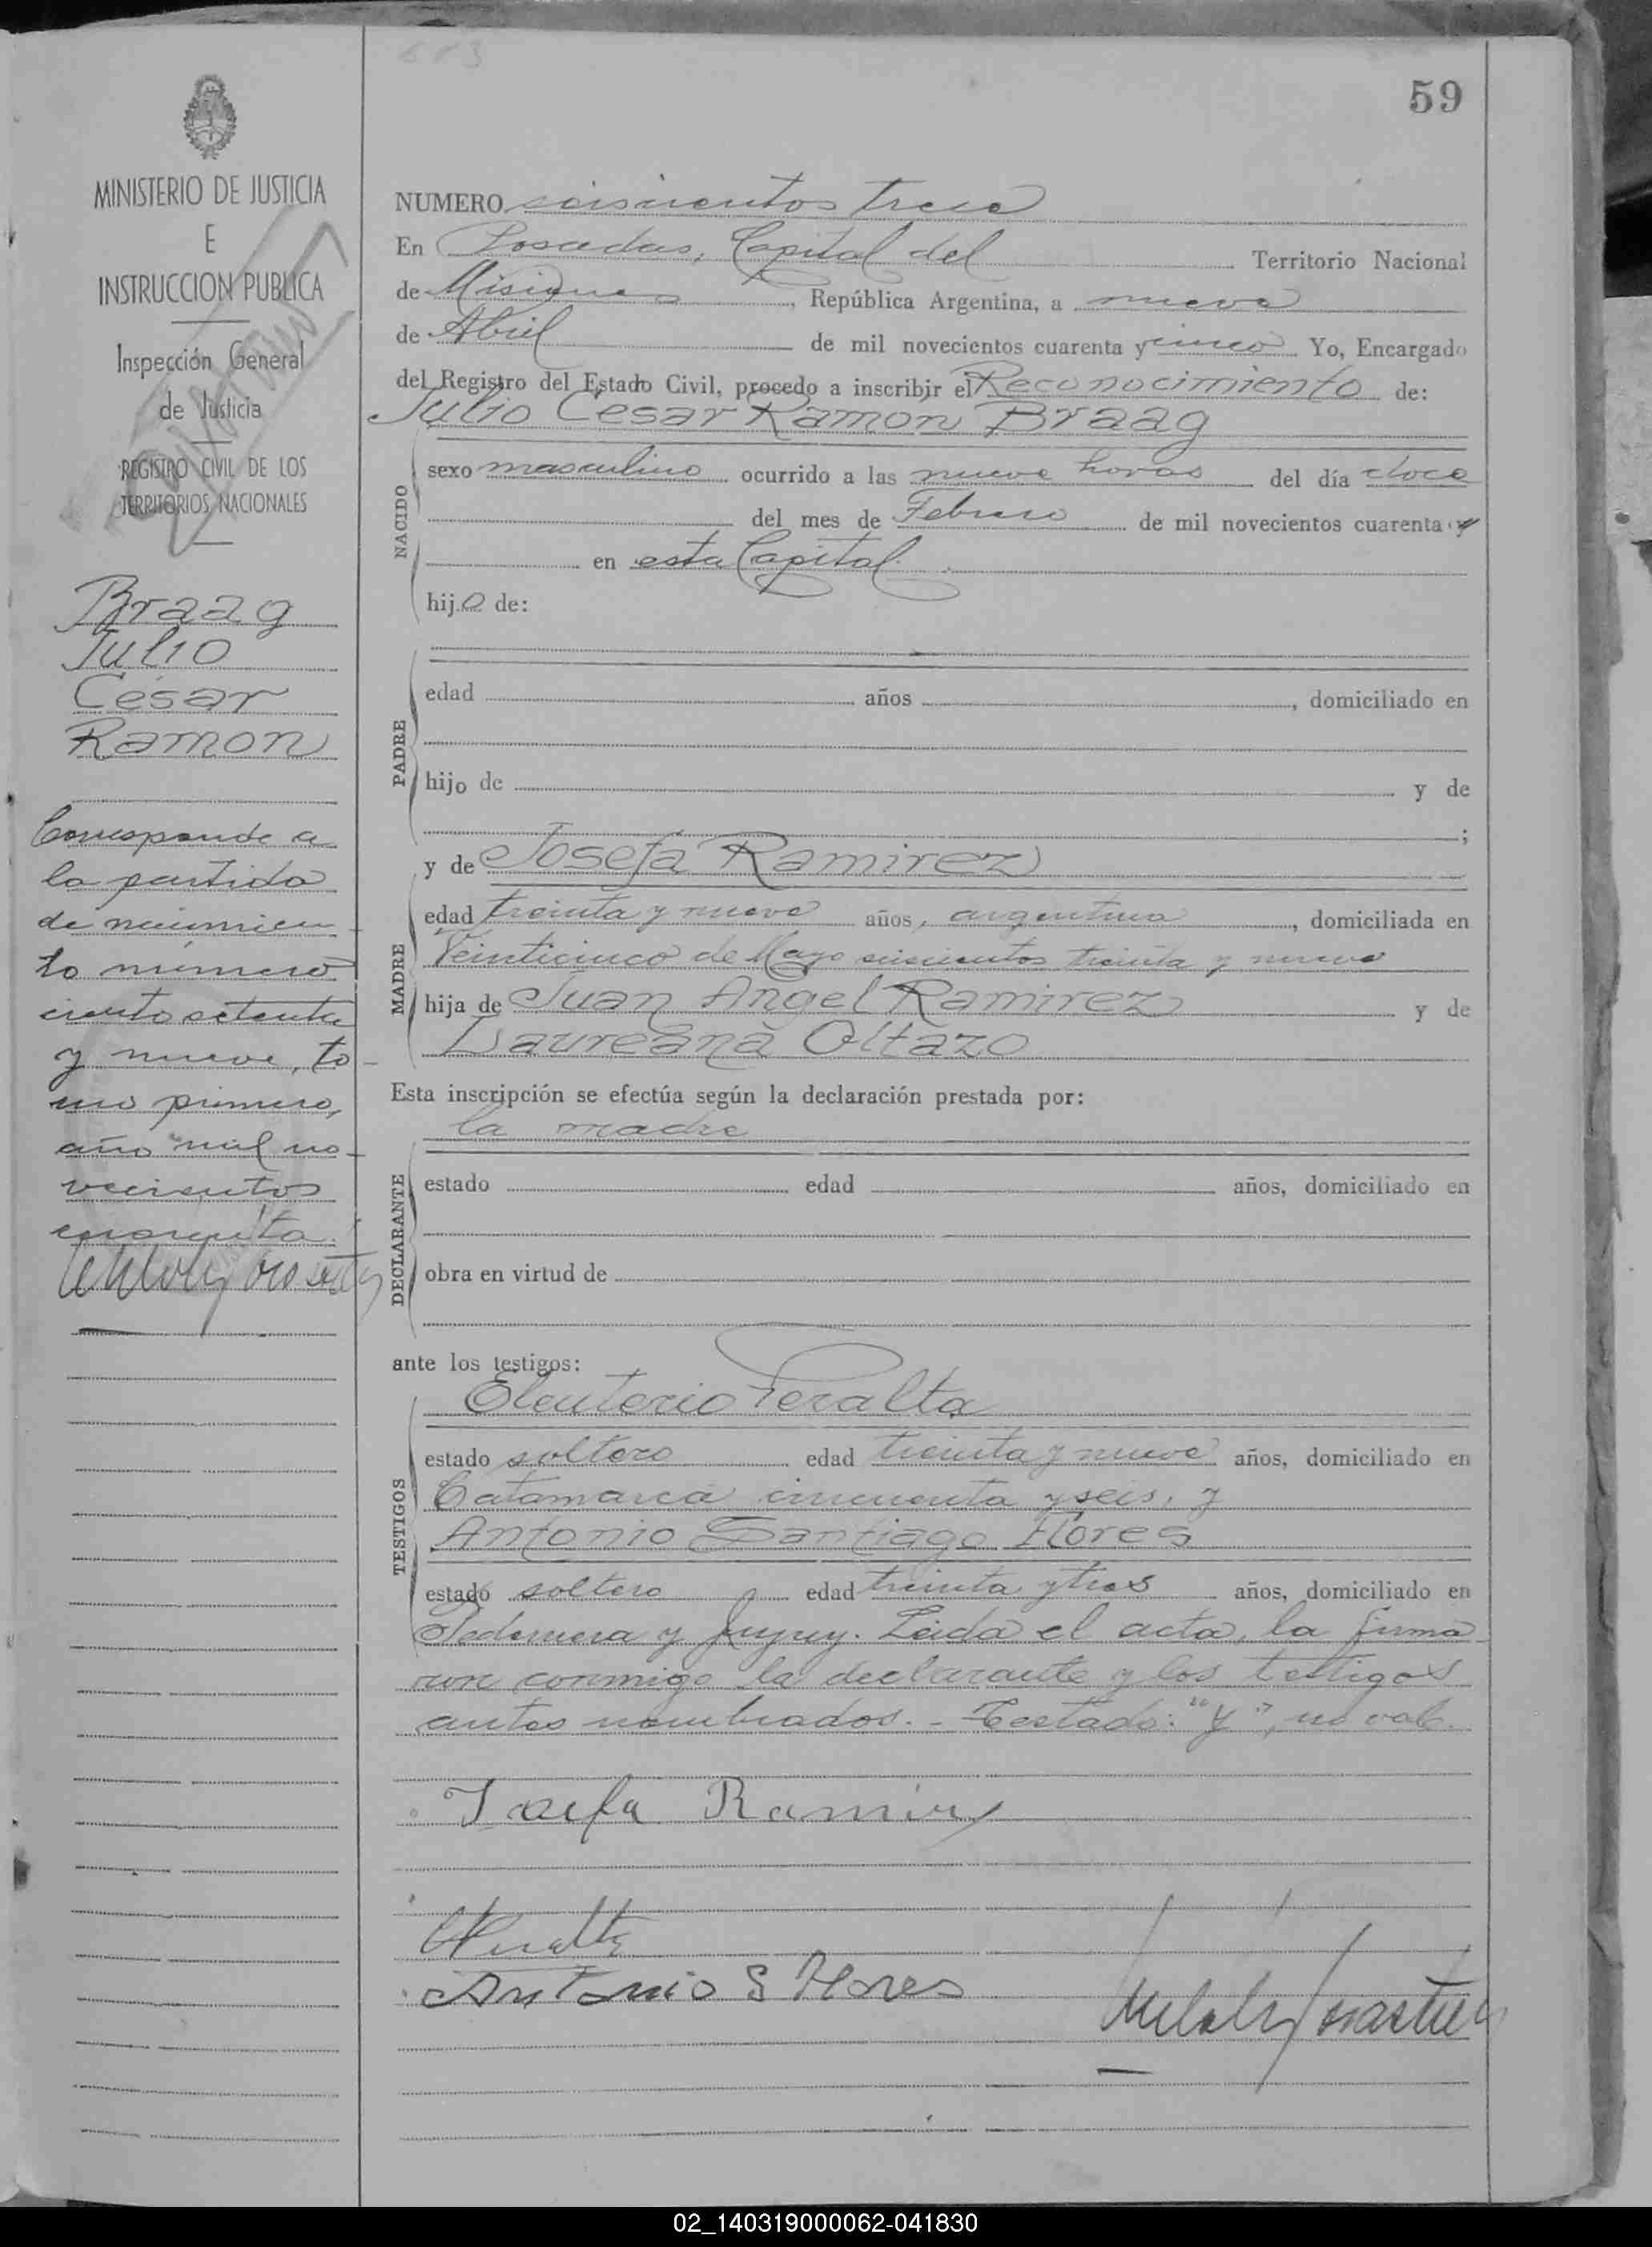 613
59
MINISTERIO DE JUSTICIA
E
INSTRUCCION PUBLICA
Inspección General
de Justicia
REGISTRO CIVIL DE LOS
TERRITORIOS NACIONALES
Braag
Julio
César
Ramon
Corresponde a
la partida
de nacimien
to número
ciento setenta
y nueve, to
mo primero,
año mil no
vecientos
cuarenta.
NUMERO seiscientos trece
En Posadas, Capital del Territorio Nacional
de Misiones, República Argentina, a nueve
de Abril de mil novecientos cuarenta y cinco Yo, Encargado
del Registro del Estado Civil, procedo a inscribir el Reconocimiento de:
Julio César Ramon Braag
NACIDO
sexo masculino ocurrido a las nueve horas del día doce
del mes de Febrero de mil novecientos cuarenta y
en esta Capital.
hijo de:
PADRE
edad años , domiciliado en
hijo de y de
;
y de Josefa Ramirez
MADRE
edad treinta y nueve años, argentina, domiciliada en
Veinticinco de Mayo seiscientos treinta y nueve
hija de Juan Angel Ramirez y de
Laureana
Esta inscripción se efectúa según la declaración prestada por:
la madre
DECLARANTE
estado edad años, domiciliado en
obra en virtud de
ante los testigos:
Eleuterio Peralta
TESTIGOS
estado soltero edad treinta y nueve años, domiciliado en
Catamarca cincuenta y seis, y
Antonio Santiago Flores
estado soltero edad treinta y tres años, domiciliado en
Pedernera y Jujuy. Leida el acta, la firma
ron conmigo la declarante y los testigos
antes nombrados. - Testado: "y", no vale.
Josefa Ramirez
Peralta
Antonio S Flores
02_140319000062-041830